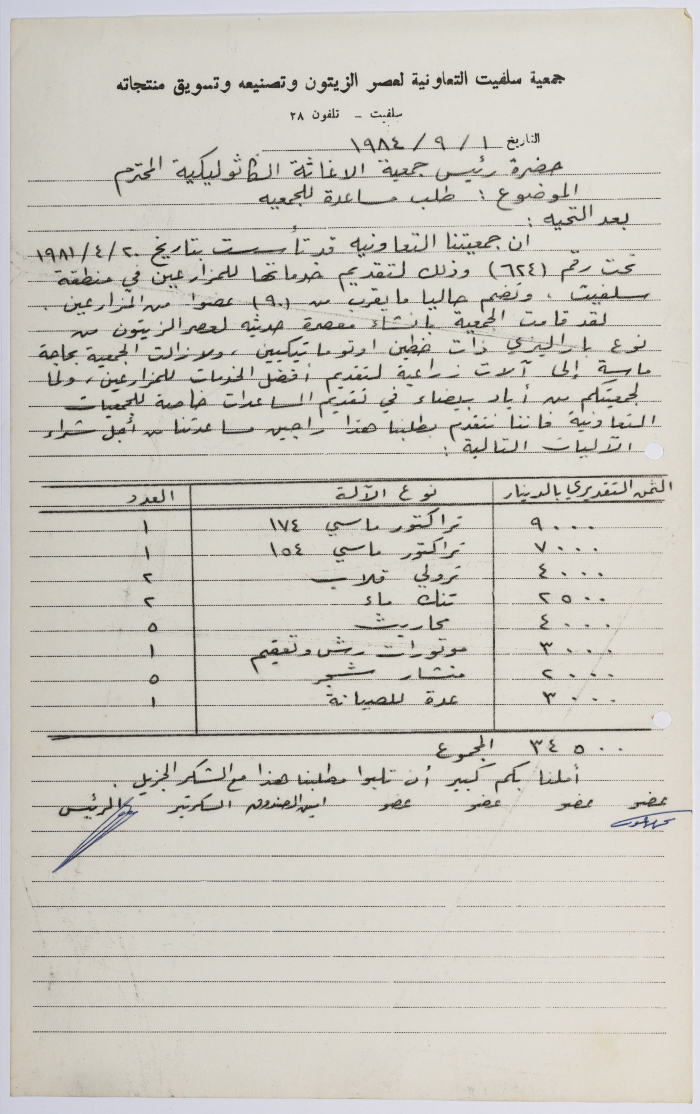 جمعية سلفيت التعاونية لعصر الزيتون وتصنيعه وتسويق منتجاته
سلفيت ـ تلفون ٢٨
التاريخ ١ / ٩ / ١٩٨٤
حضرة رئيس جمعية الاغاثة الكاثوليكية المحترم
الموضوع : طلب مساعدة للجمعيه
بعد التحيه :
ان جمعيتنا التعاونيه قد تأسست بتاريخ ٢٠/٤/١٩٨١
تحت رقم (٦٢٤) وذلك لتقديم خدماتها للمزارعين في منطقة
سلفيت ، وتضم حاليا ما يقرب من (٩٠) عضوا من المزارعين .
لقد قامت الجمعية بانشاء معصرة حديثه لعصر الزيتون من
نوع باراليزي ذات خطين اوتوماتيكيين ، ولا زالت الجمعية بحاجة
ماسة إلى آلات زراعية لتقديم افضل الخدمات للمزارعين ، ولما
لجمعيتكم من أياد بيضاء في تقديم المساعدات خاصة للجمعيات
التعاونية فاننا نتقدم بطلبنا هذا راجين مساعدتنا من أجل شراء
الآليات التالية :
العدد نوع الآلة الثمن التقديري بالدينار
١ تراكتور ماسي ١٧٤ ٩٠٠٠
١ تراكتور ماسي ١٥٤ ٧٠٠٠
٢ ترولي قلاب ٤٠٠٠
٢ تنك ماء ٢٥٠٠
٥ محاريث ٤٠٠٠
١ موتورات رش وتعقيم ٣٠٠٠
٥ منشار شجر ٢٠٠٠
١ عدة للصيانة ٣٠٠٠
المجموع ٣٤٥٠٠
أملنا بكم كبير أن تلبوا مطلبنا هذا مع الشكر الجزيل .
عضو عضو عضو عضو امين الصندوق السكرتير الرئيس